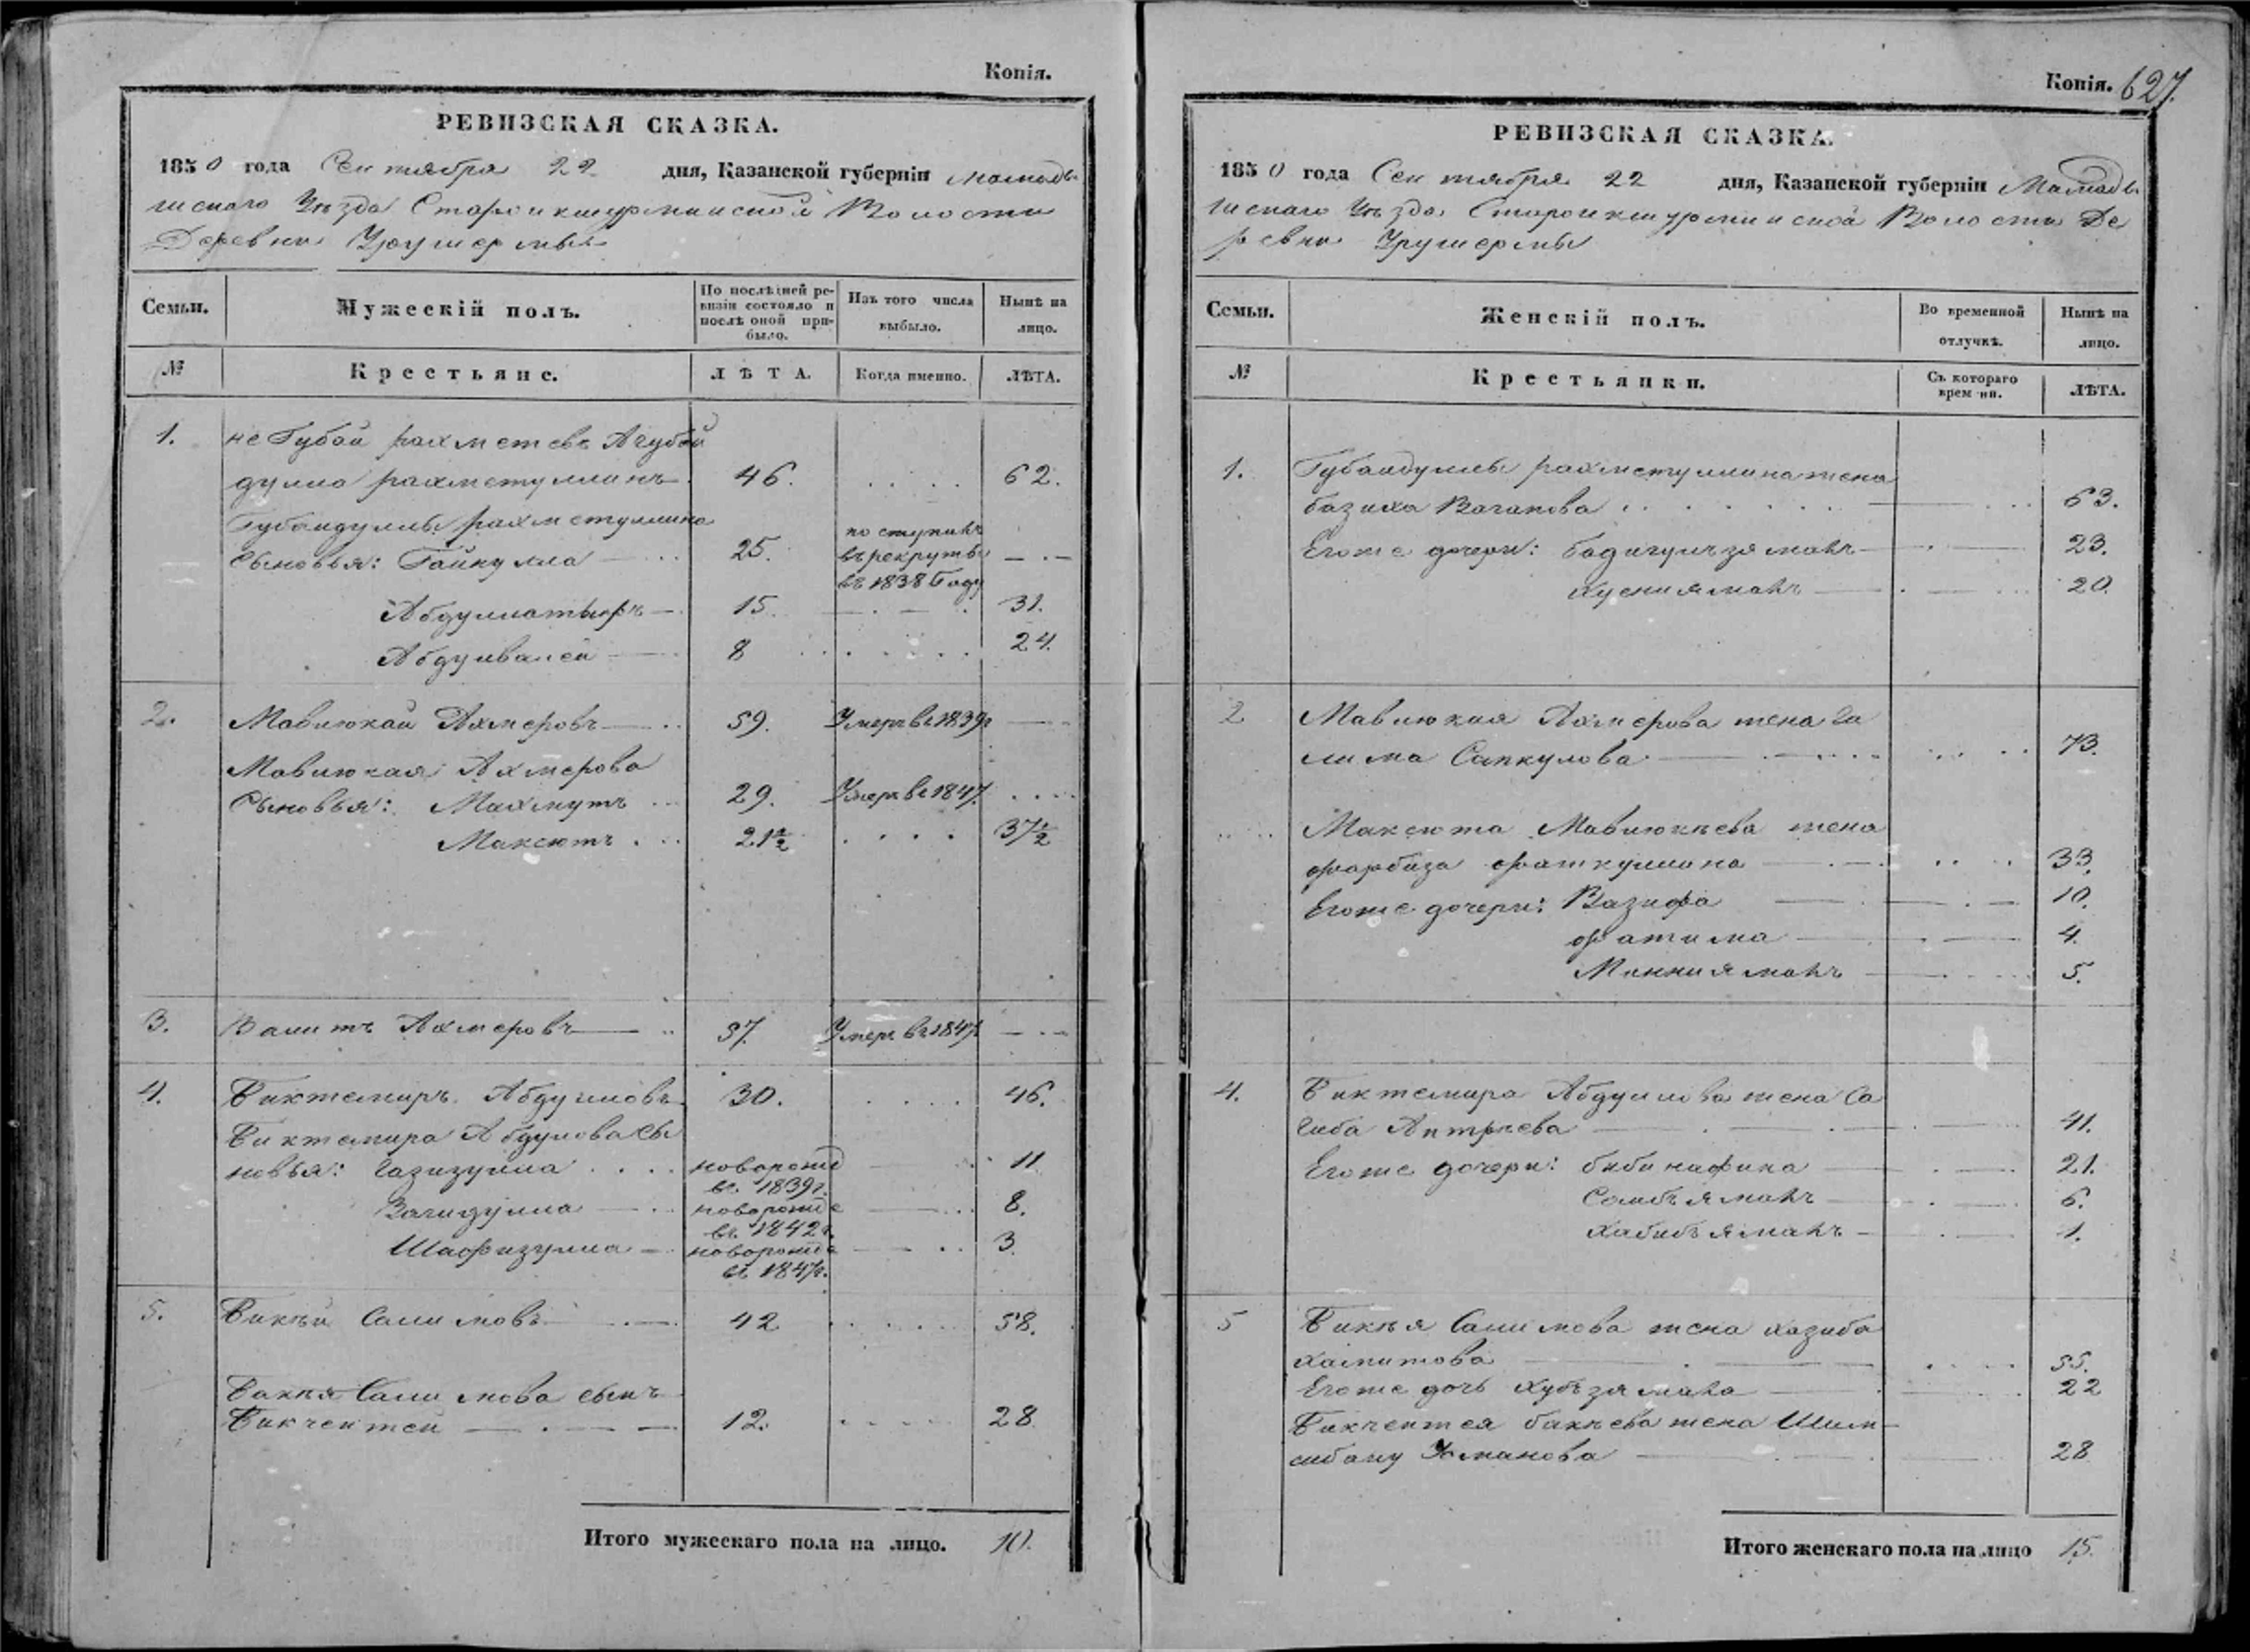 Копія.
РЕВИЗСКАЯ СКАЗКА.
1850 года Сентября 22 дня, Казанской губерніи Мамады
шскаго Уѣзда Староикшурминской Волости
Деревни Урушермы
Семьи. Мужескій полъ. По послѣдней ре-визіи состояло и послѣ оной при-было. Изъ того числа выбыло. Нынѣ на лицо.
№ Крестьяне. ЛѢТА. Когда именно. ЛѢТА.
1. не Губай рахметевъ Агубай
дулла рахметуллинъ 46. 62.
Губайдуллы рахметуллина
Сыновья: Гайнулла 25. поступилъ въ рекруты въ 1838 Году
Абдуллатыфъ 15. 31.
Абдулвалей 8 24.
2. Мавлюкай Ахмеровъ 59. Умеръ въ 1839г
Мавлюкая Ахмерова
Сыновья: Махмутъ 29. Умеръ въ 1847.
Максютъ 21½ 37½
3. Валитъ Ахмеровъ 57. Умеръ въ 1847
4. Биктемиръ Абдуловъ 30. 46.
Биктемира Абдулова Сы
новья: Газизулла новорожд въ 1839г. 11
Вагизулла новорожде въ 1842г. 8.
Шафизулла новорожде въ 1847г. 3.
5. Бикъй Салимовъ 42 58.
Бакъя Салимова сынъ
Бикчентей 12. 28.
Итого мужескаго пола на лицо. 10.
Копія. 627.
РЕВИЗСКАЯ СКАЗКА.
1850 года Сентября 22 дня, Казанской губерніи Мамады
шскаго Уѣзда Староикшурминской Волости Де
ревни Урушермы
Семьи. Женскій полъ. Во временной отлучкѣ. Нынѣ на лицо.
№ Крестьянки. Съ котораго времени. ЛѢТА.
1. Губайдуллы рахметуллина жена
базиха Вагапова 63.
Егоже дочери: бадигулъзяманъ 23.
Хуснияманъ 20.
2 Мавлюкая Ахмерова жена Га
лима Сапкулова 73.
Максюта Мавлюкъева жена
фарбиза фаткуллина 33.
Егоже дочери: Вазифа 10.
фатима 4.
Миннияманъ 5.
4. Биктемира Абдуллова жена Са
гиба Аптръева 41.
Егоже дочери: бибинафика 21.
Самбъяманъ 6.
Хабибъяманъ 1.
5 Бикъя Салимова жена хазиба
Хамитова 55.
Егоже дочь Хубъзямала 22
Бикчентея бакъева жена Шам-
сибану Усманова 28
Итого женскаго пола на лицо 15.